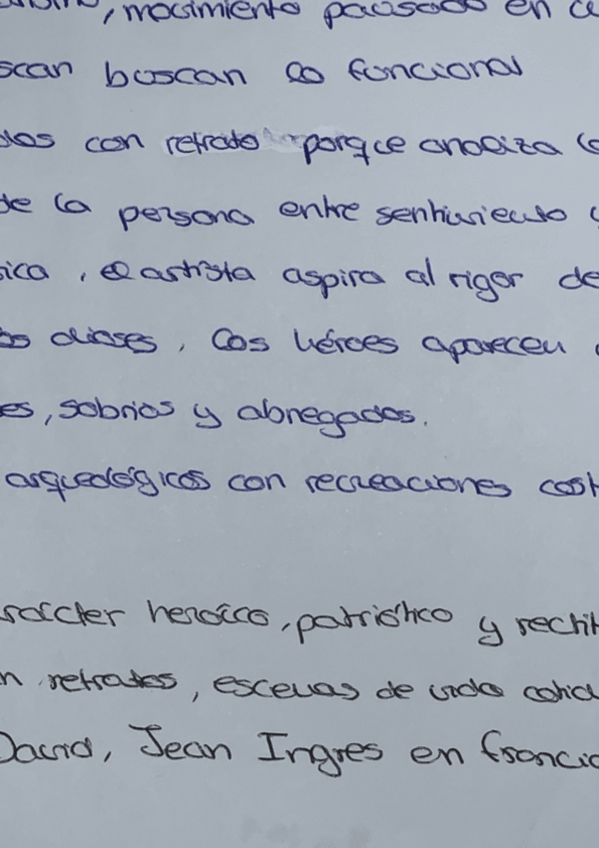 , movimiento pausado en
scan buscan lo funcional
con retrato porque analiza
de la persona entre sentimiento y
sica, el artista aspira al rigor de
dioses, los héroes aparecen
es, sobrios y abnegados.
arqueológicos con recreaciones cost
racter heroíco, patriótico y rectit
n retratos, escenas de vida cotid
David, Jean Ingres en francia